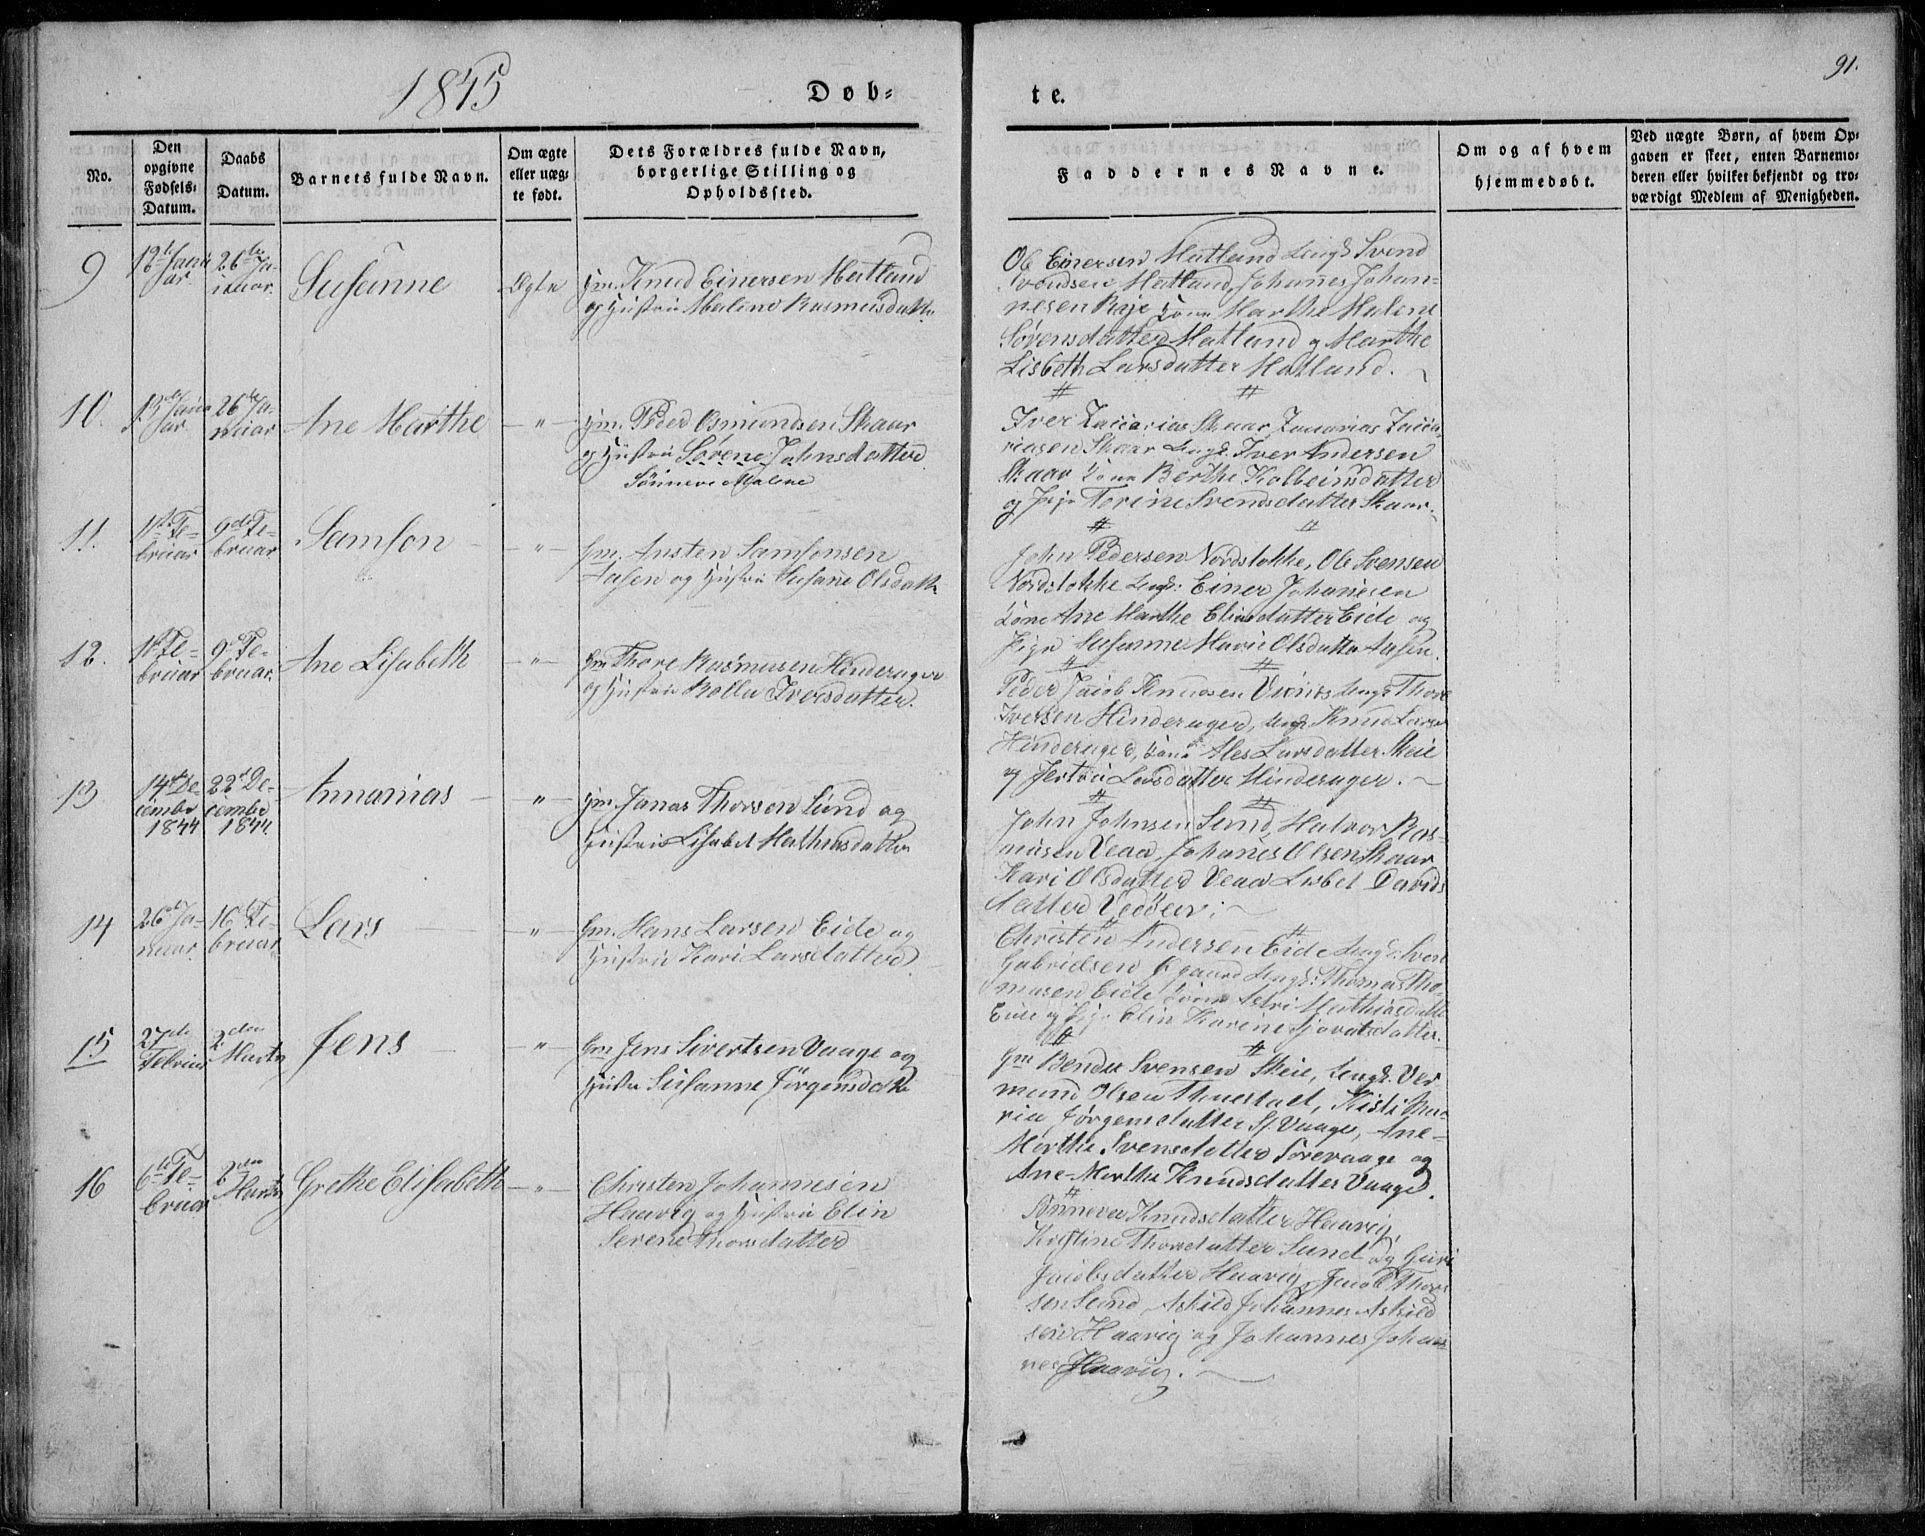 1845
Døb-
te.
91.
No.
Den
opgivne
Fødsels-
Datum.
Daabs
Datum.
Barnets fulde Navn.
Om ægte
eller uæg-
te født.
Dets Forældres fulde Navn,
borgerlige Stilling og
Opholdssted.
Faddernes Navne.
Om og af hvem
hjemmedøbt.
Ved uægte Børn, af hvem Op-
gaven er skeet, enten Barnemo-
deren eller hvilket bekjendt og tro-
værdigt Medlem af Menigheden.
9
26de Ja-
nuar.
Susanne
Ægte
Gm. Knud Einersen Matland
og Hustru Malene Rasmusdatter
Ole Einersen Matland Ungk. Svend
Svendsen Matland, Johanes Johan-
nesen Kone Marthe Malene
Sørensdatter Matland og Marthe
Lisbeth Larsdatter Matland.
10.
26de Ja-
nuar
Ane Marthe
"
Gm. Peder Osmundsen Skaar
og Hustru Sørene Johnsdatter
Sønneve Malene
Iver Zacarias Skaar, Zacarias Zaca-
riasen Skaar Ungk. Iver Andersen
Skaar Kone Berthe Kolbeinsdatter
og Pige Torine Svendsdatter Skaar.
11.
1ste Fe-
bruar
9de Fe-
bruar
Samson
"
Gm. Austen Samsonsen
Aasen og Hustru Susane Olsdatter
John Pedersen Nordstokke, Ole Svensen
Nordstokke Ungk. Einer Johanesen
Kone Ane Marthe Elinsdatter Eide og
Pige Susanne Marie Olsdatter Aasen.
12.
1ste Fe-
bruar
9de Fe-
bruar.
Ane Lisabeth
"
Gm. Thore Rasmusen Hinderager
og Hustru Iversdatter.
Peder Jacob Knudsen Ungk. Thore
Iversen Hinderager, Ungk. Knud Larsen
Hinderager, Kone Ales Larsdatter Skeie
og Jertru Larsdatter Hinderager.
13
14de De-
cember
1844
22de De-
cember
1844
Annanias
"
Gm. Jonas Thorsen Sund og
Hustru Lisabet Mathiasdatter
John Johnsen Sund, Halvor Ras-
musen Veaa, Johanes Olsen Skaar
Kari Olsdatter Veaa Lisbet Davids
datter Vedøen;
14
26de Ja-
nuar
16de Fe-
bruar.
Lars
"
Gm. Hans Larsen Eide og
Hustru Kari Larsdatter
Christen Andersen Eide Ungk: Sven
Gabrielsen Ungk: Thomas Tho-
masen Eide Kone Mathiasdatter
Eide og Pige Elin Karene Sjovatsdatter.
15
27de
Februar
2den
Marts
Jens
"
Gm. Jens Sivertsen Vaage og
Hustru Susanne Jørgensdatter
Gm. Svensen Skeie, Ungk. Ver
mund Olsen Thuestad, Kisti Ma-
ria Jørgensdatter Vaage, Ane
Marthe Svensdatter Sørevaage og
Ane Marthe Knudsdatter Vaage.
16
6te Fe-
bruar
Marts
Grethe Elisabeth
"
Christen Johannesen
Haavig og Hustru Elin
Serene Thorsdatter
Sønneva Knudsdatter Haavig,
Kristine Thorsdatter Sund og Guri
Jacobsdatter Haavig, Jacob Thor
sen Sund, Askild Johannes Askild
sen Haavig og Johannes Johan
nes Haavig.